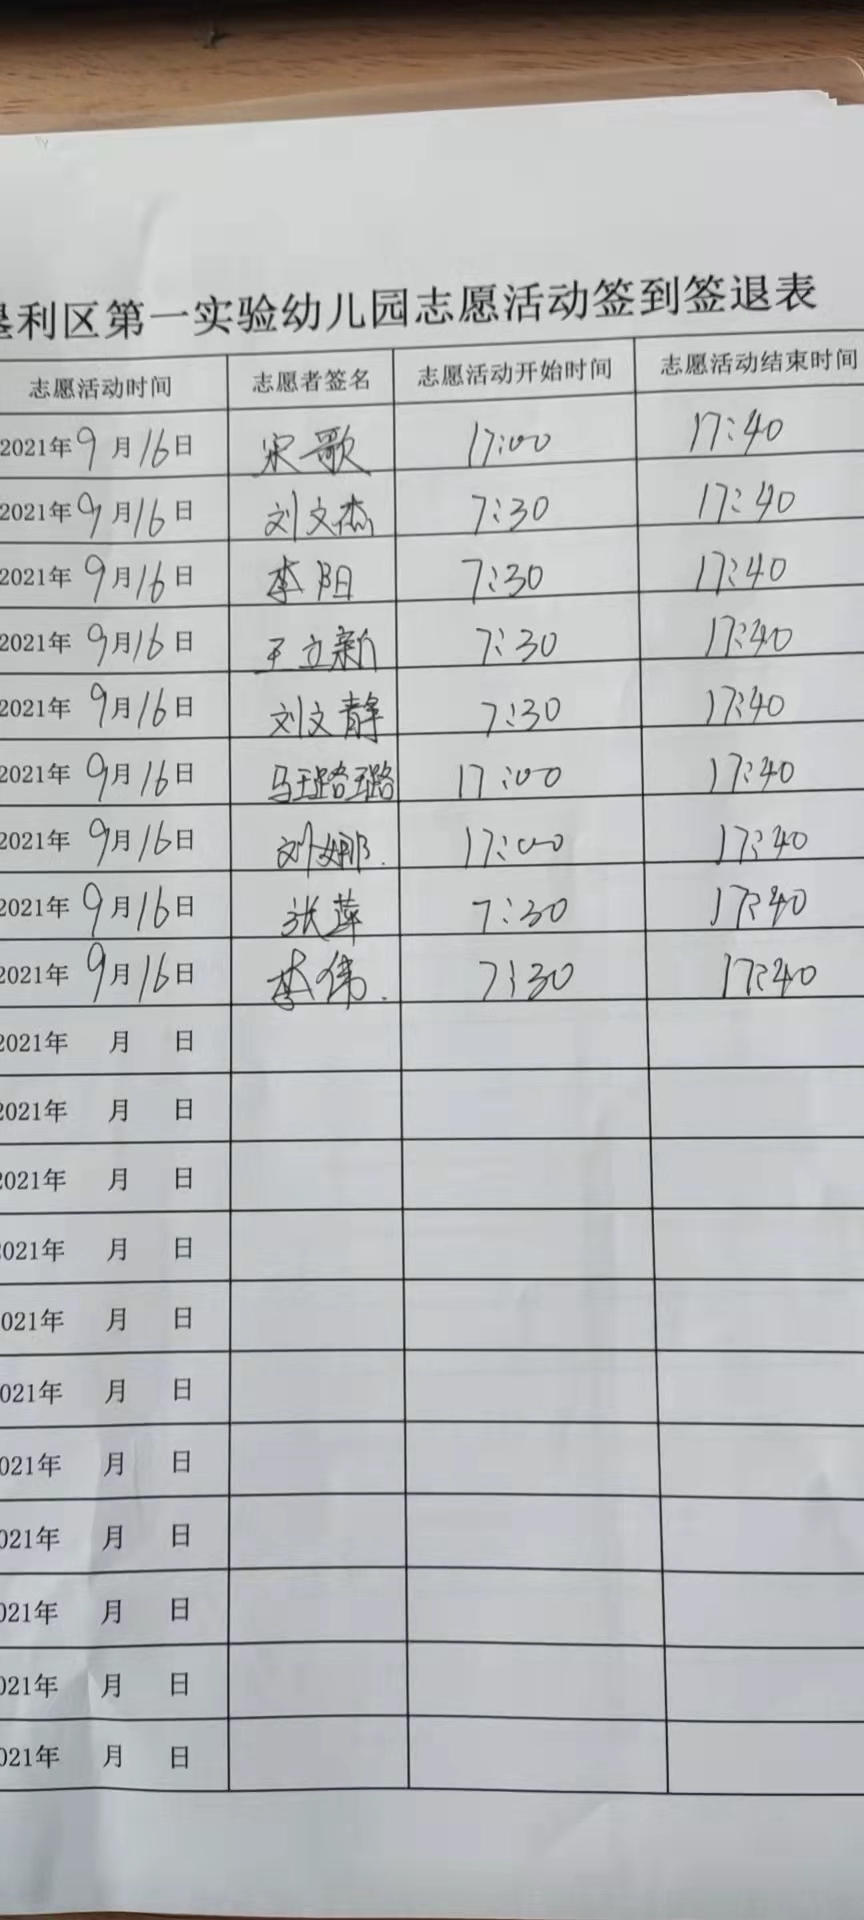 垦利区第一实验幼儿园志愿活动签到签退表
志愿活动时间 志愿者签名 志愿活动开始时间 志愿活动结束时间
2021年9月16日 宋歌 17:00 17:40
2021年9月16日 刘文杰 7:30 17:40
2021年9月16日 李阳 7:30 17:40
2021年9月16日 王立新 7:30 17:40
2021年9月16日 刘文静 7:30 17:40
2021年9月16日 马璐璐 17:00 17:40
2021年9月16日 刘娜. 17:00 17:40
2021年9月16日 张萍 7:30 17:40
2021年9月16日 李伟. 7:30 17:40
2021年 月 日
2021年 月 日
2021年 月 日
2021年 月 日
021年 月 日
021年 月 日
021年 月 日
021年 月 日
021年 月 日
021年 月 日
021年 月 日